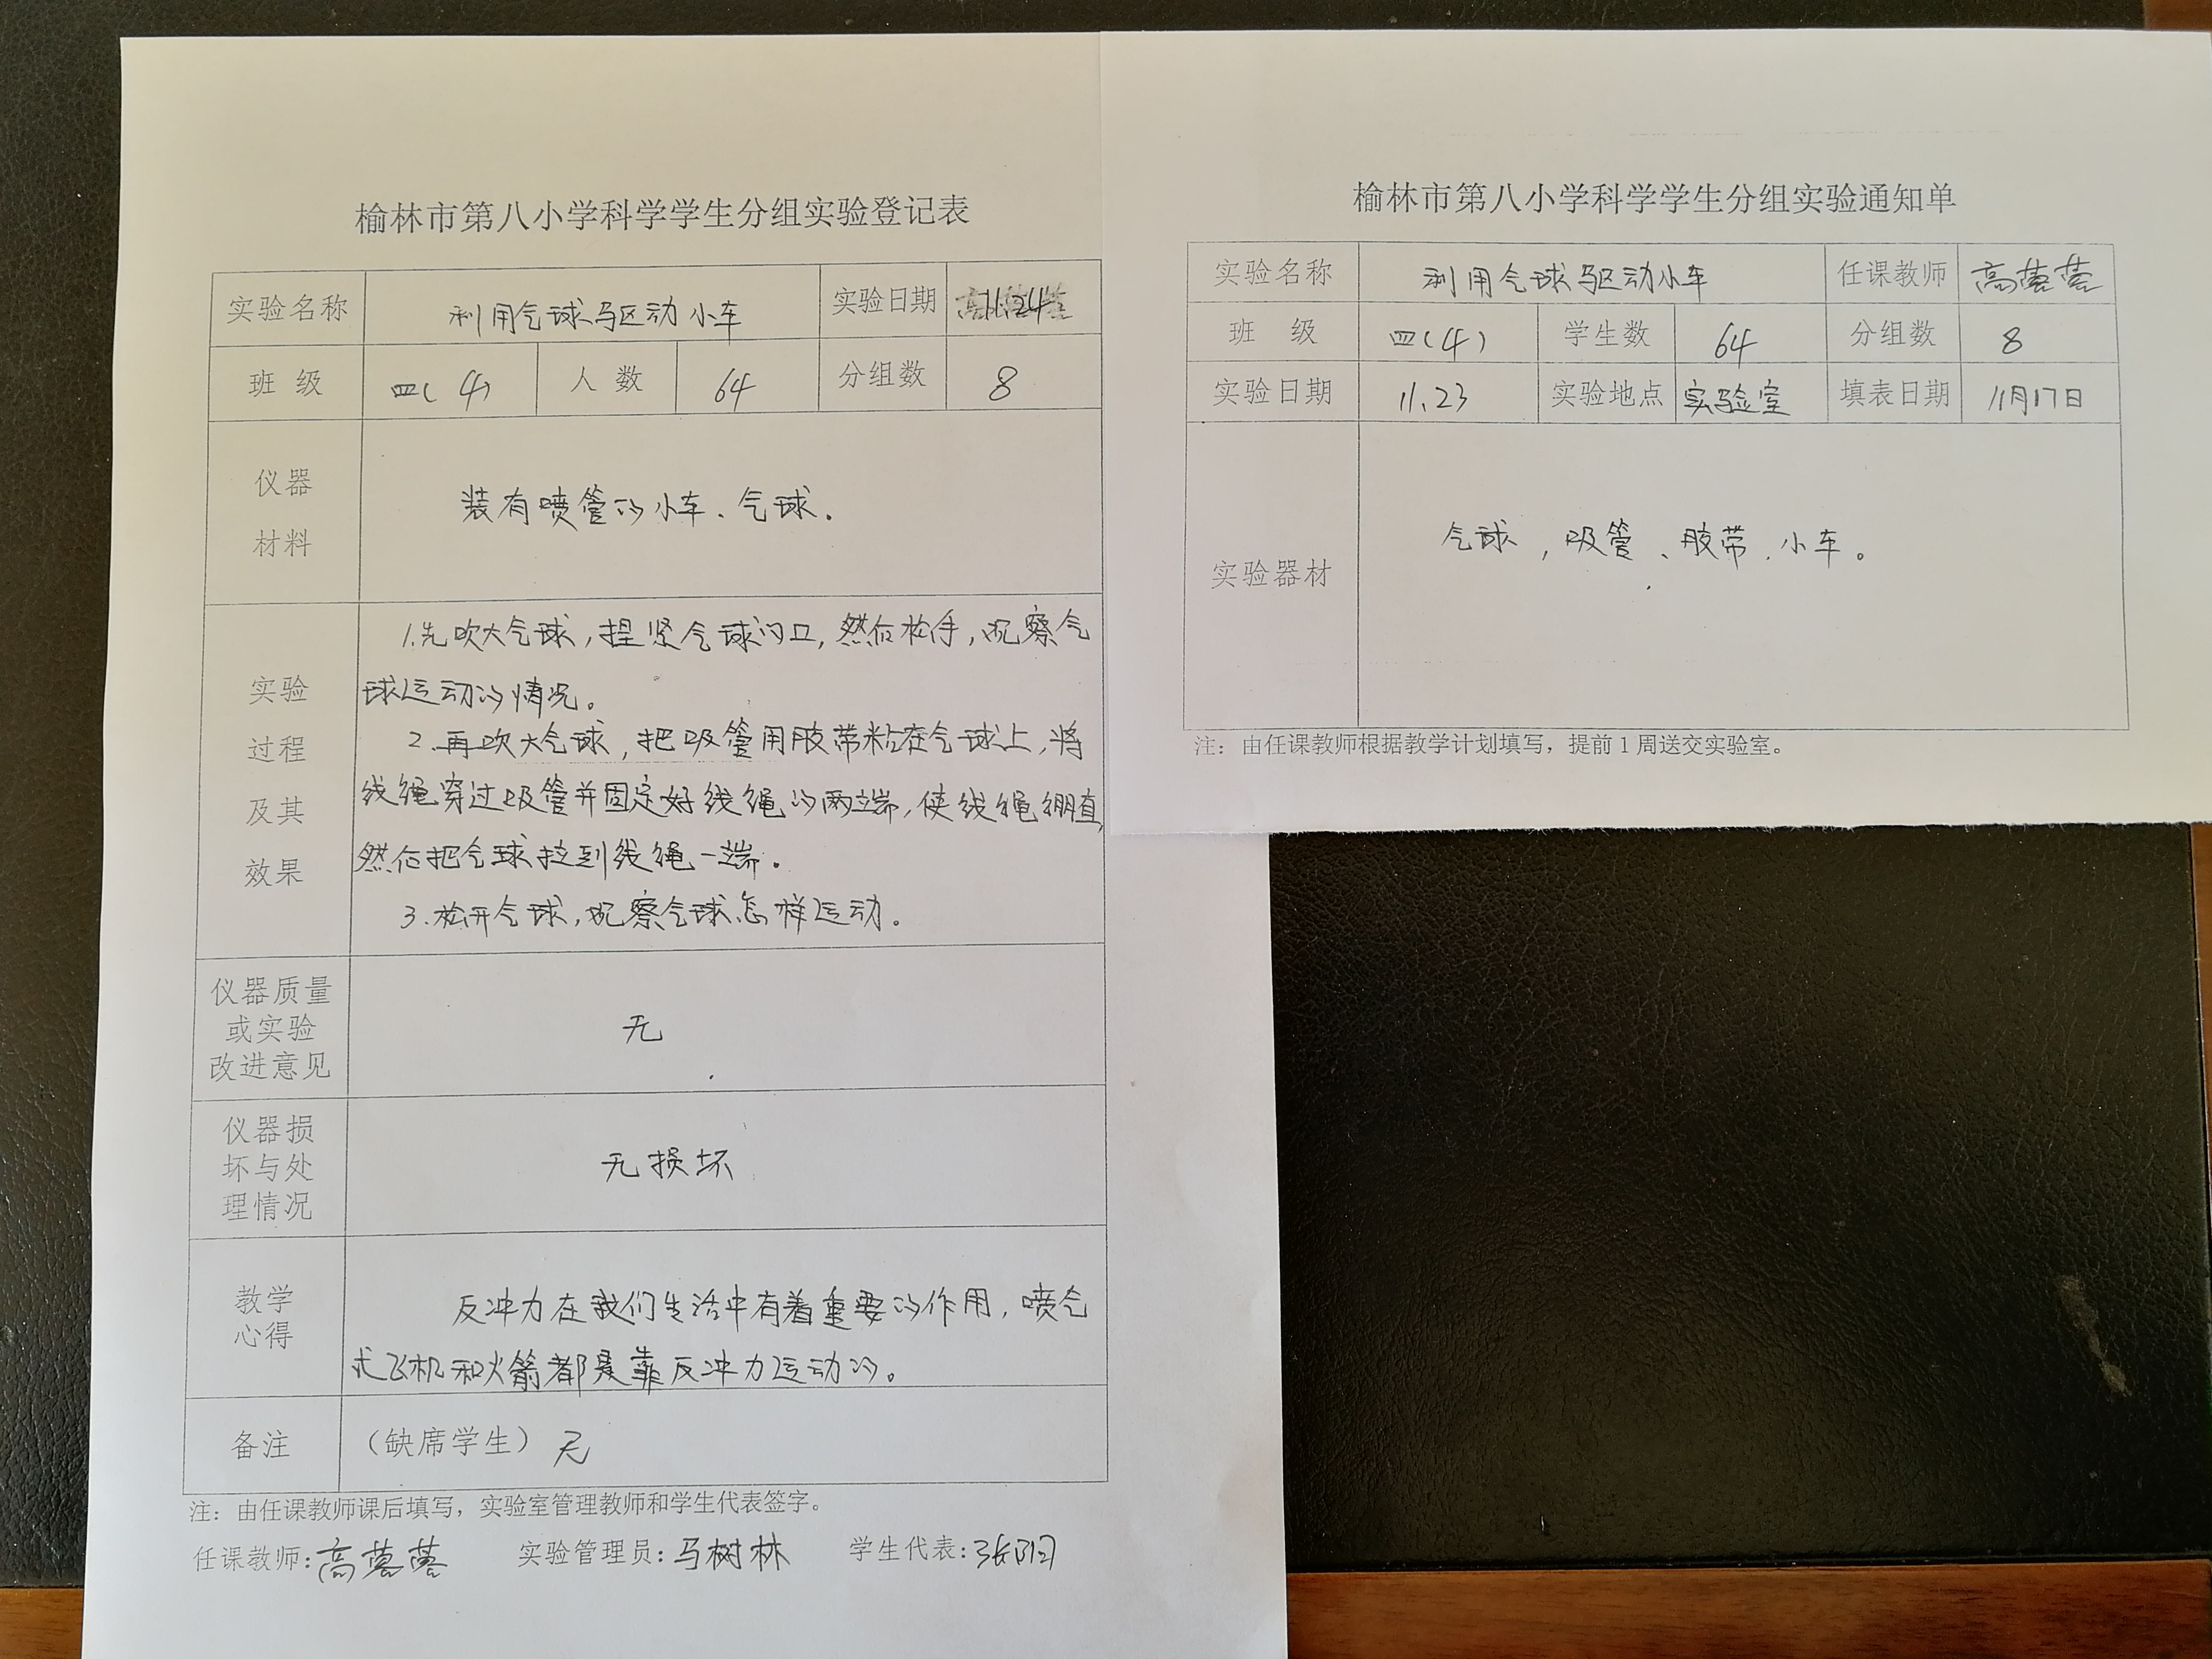 榆林市第八小学科学学生分组实验登记表
实验名称 利用气球驱动小车 实验日期 11.24
班 级 四(4) 人 数 64 分组数 8
仪器
材料
装有喷管的小车、气球.
实验
过程
及其
效果
1.先吹大气球,捏紧气球门口,然后松手,观察气
球运动的情况。
2.再吹大气球,把吸管用胶带粘在气球上,将
线绳穿过吸管并固定好线绳的两端,使线绳绷直,
然后把气球拉到线绳一端.
3.松开气球,观察气球怎样运动。
仪器质量
或实验
改进意见
无
仪器损
坏与处
理情况
无损坏
教学
心得
反冲力在我们生活中有着重要的作用,喷气
式飞机和火箭都是靠反冲力运动的。
备注 (缺席学生) 无
注:由任课教师课后填写,实验室管理教师和学生代表签字。
任课教师: 高 实验管理员:马树林 学生代表:张
榆林市第八小学科学学生分组实验通知单
实验名称 利用气球驱动小车 任课教师 高
班 级 四(4) 学生数 64 分组数 8
实验日期 11.23 实验地点 实验室 填表日期 11月17日
实验器材
气球,吸管、胶带、小车。
注:由任课教师根据教学计划填写,提前1周送交实验室。